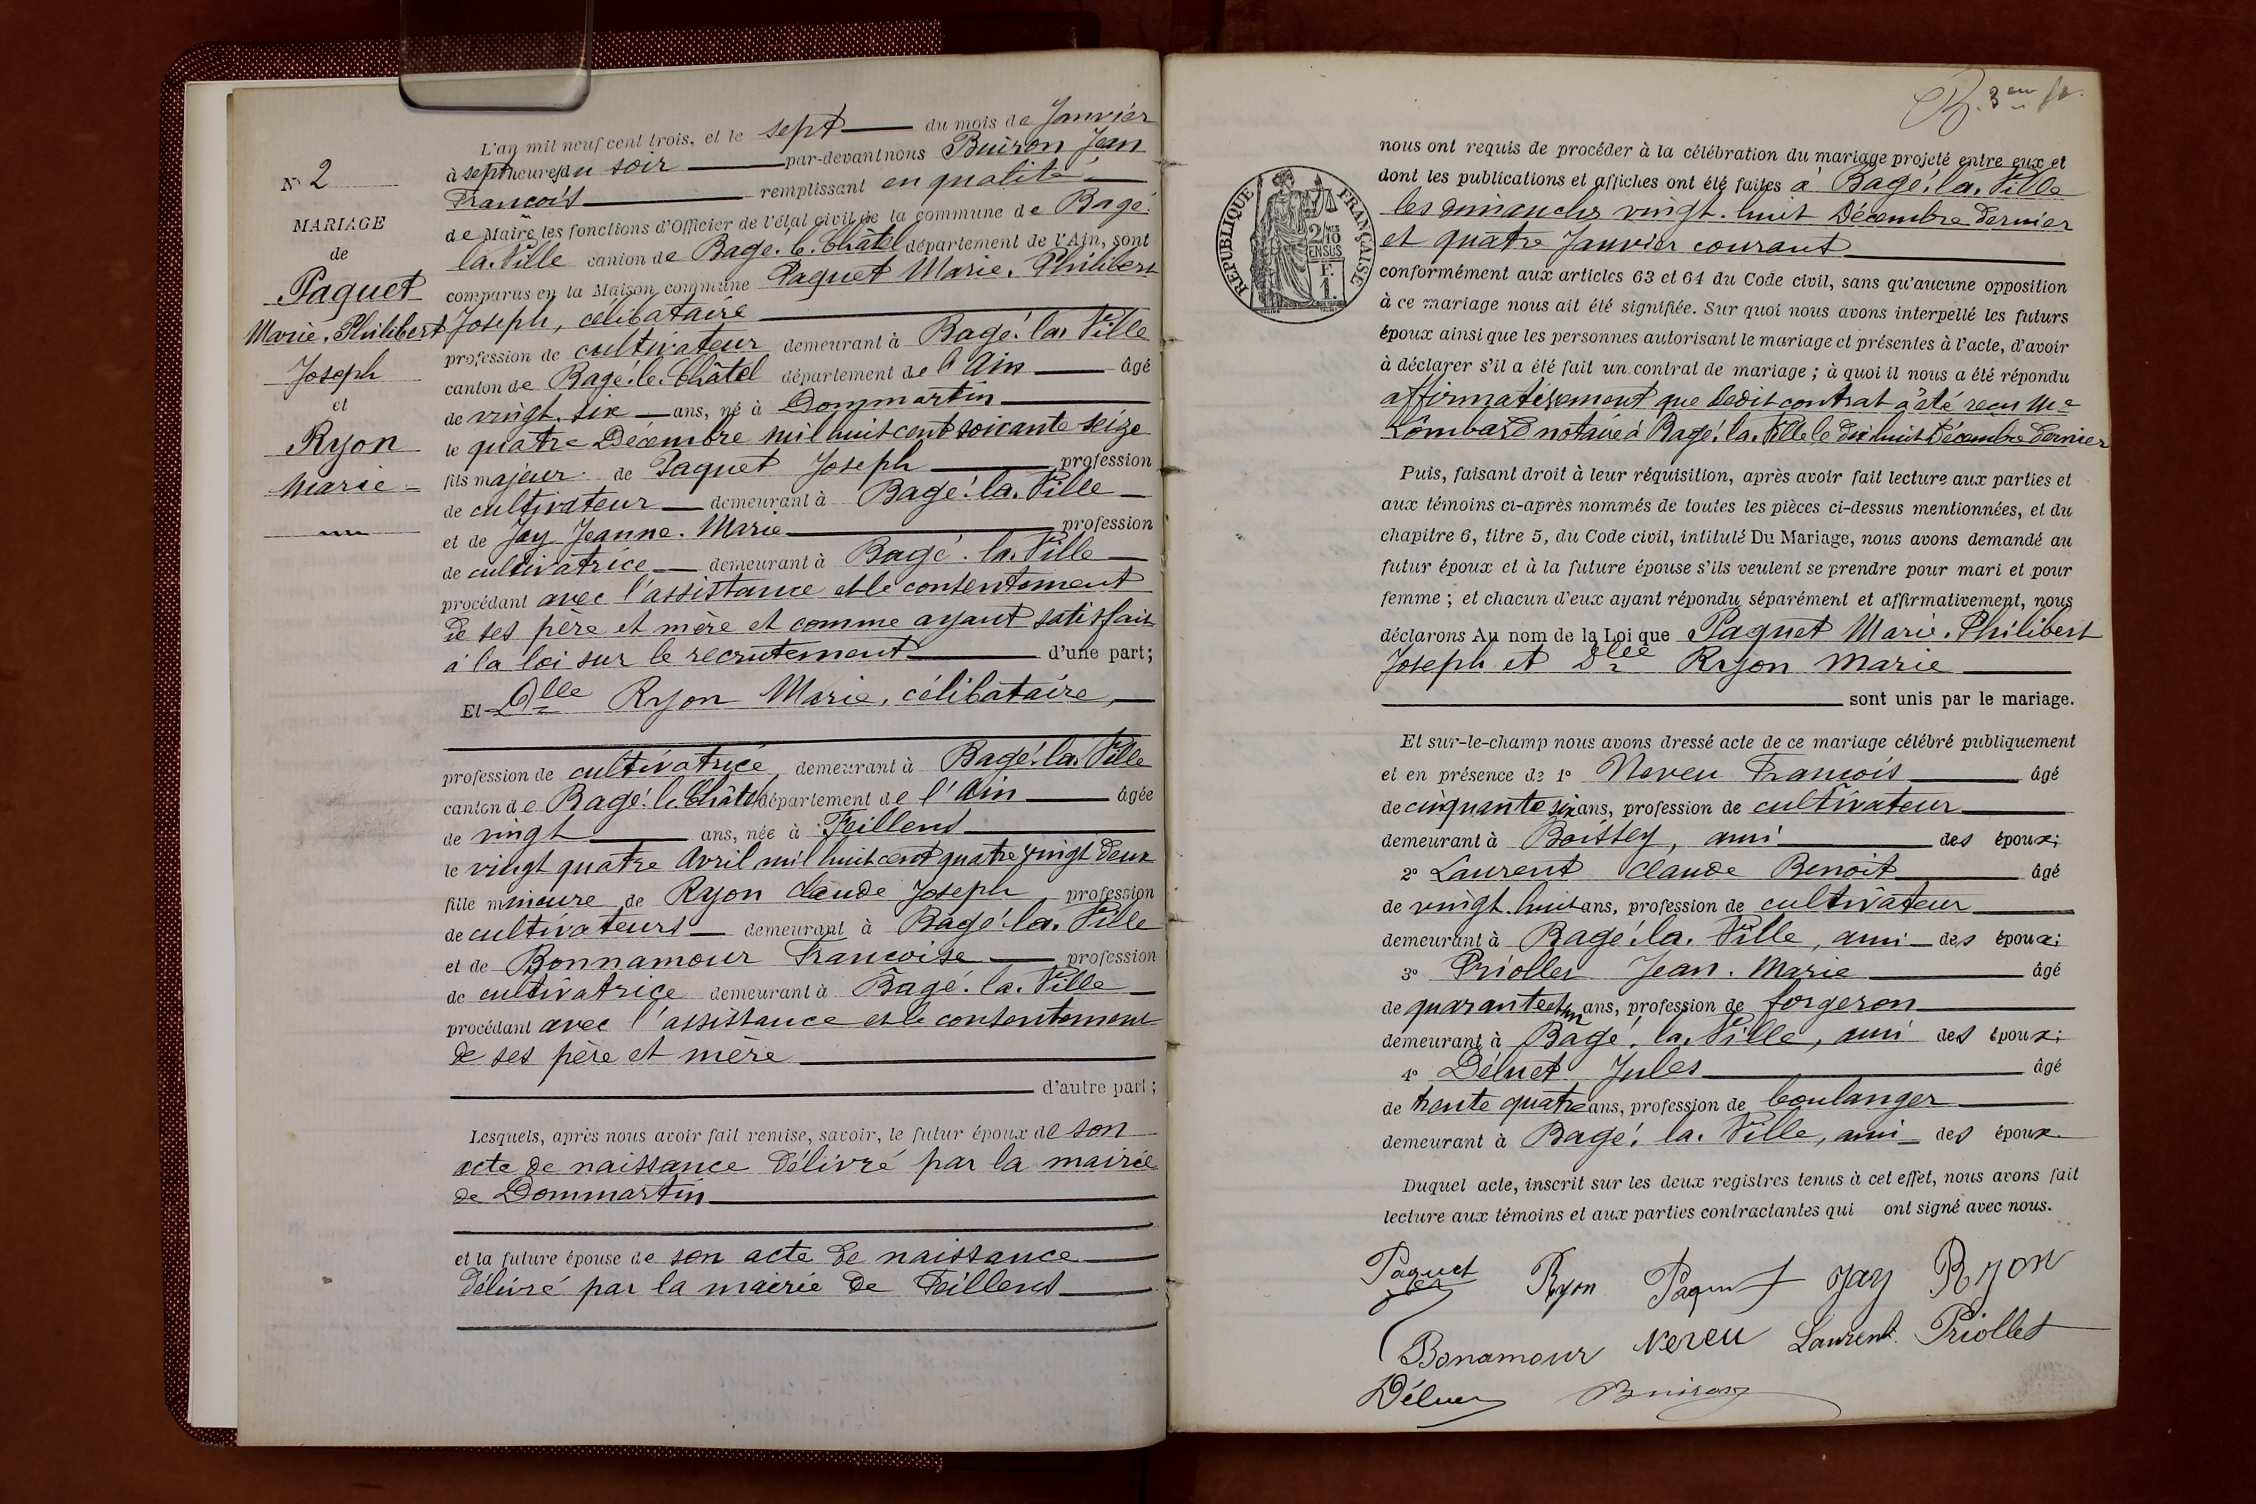 N° 2
MARIAGE
de
Paquet
Marie. Philibert
Joseph
et
Ryon
Marie
L'an mil neuf cent trois, et le sept du mois de Janvier
à sept heures du soir par-devant nous Buiron Jean
François remplissant en qualité
de Maire les fonctions d'Officier de l'état civil de la commune de Bagé.
la. Ville canton de Bagé. le. Châtel département de l'Ain, sont
comparus en la Maison commune Paquet Marie. Philibert
Joseph, célibataire
profession de cultivateur demeurant à Bagé. la. Ville
canton de Bagé. le. Châtel département de l'Ain âgé
de vingt. six ans, né à Dommartin
le quatre Décembre mil huit cent soixante seize
fils majeur de Paquet Joseph profession
de cultivateur demeurant à Bagé. la. Ville
et de Jay Jeanne. Marie profession
de cultivatrice demeurant à Bagé. la. Ville
procédant avec l'assistance et le consentement
de ses père et mère et comme ayant satisfait
à la loi sur le recrutement d'une part;
Et Dlle Ryon Marie, célibataire,
profession de cultivatrice demeurant à Bagé. la. Ville
canton de Bagé. le. Châtel département de l'Ain âgée
de vingt ans, née à Feillens
le vingt quatre Avril mil huit cent quatre vingt deux
fille mineure de Ryon Claude Joseph profession
de cultivateurs demeurant à Bagé. la. Ville
et de Bonnamour Françoise profession
de cultivatrice demeurant à Bagé. la. Ville
procédant avec l'assistance et le consentement
de ses père et mère
d'autre part;
Lesquels, après nous avoir fait remise, savoir, le futur époux de son
acte de naissance délivré par la mairie
de Dommartin
et la future épouse de son acte de naissance
délivré par la mairie de Feillens
RÉPUBLIQUE FRANÇAISE
2/10
EN SUS
F.
1.
nous ont requis de procéder à la célébration du mariage projeté entre eux et
dont les publications et affiches ont été faites à Bagé. la. Ville
les dimanches vingt. huit Décembre dernier
et quatre Janvier courant
conformément aux articles 63 et 64 du Code civil, sans qu'aucune opposition
à ce mariage nous ait été signifiée. Sur quoi nous avons interpellé les futurs
époux ainsi que les personnes autorisant le mariage et présentes à l'acte, d'avoir
à déclarer s'il a été fait un contrat de mariage ; à quoi il nous a été répondu
affirmativement que ledit contrat a été reçu Me
Lombard notaire à Bagé. la. Ville le dix huit Décembre dernier
Puis, faisant droit à leur réquisition, après avoir fait lecture aux parties et
aux témoins ci-après nommés de toutes les pièces ci-dessus mentionnées, et du
chapitre 6, titre 5, du Code civil, intitulé Du Mariage, nous avons demandé au
futur époux et à la future épouse s'ils veulent se prendre pour mari et pour
femme ; et chacun d'eux ayant répondu séparément et affirmativement, nous
déclarons Au nom de la Loi que Paquet Marie. Philibert
Joseph et Dlle Ryon Marie
sont unis par le mariage.
Et sur-le-champ nous avons dressé acte de ce mariage célébré publiquement
et en présence de 1° Neveu François âgé
de cinquante six ans, profession de cultivateur
demeurant à Boissey, ami des époux;
2° Laurent Claude Benoit âgé
de vingt. huit ans, profession de cultivateur
demeurant à Bagé. la. Ville, ami des époux;
3° Priollet Jean. Marie âgé
de quarante et un ans, profession de forgeron
demeurant à Bagé. la. Ville, ami des époux;
4° Déluet Jules âgé
de trente quatre ans, profession de boulanger
demeurant à Bagé. la. Ville, ami des époux
Duquel acte, inscrit sur les deux registres tenus à cet effet, nous avons fait
lecture aux témoins et aux parties contractantes qui ont signé avec nous.
Paquet Ryon Paquet Jay Ryon
Bonamour Neveu Laurent Priollet
Déluet Buiron